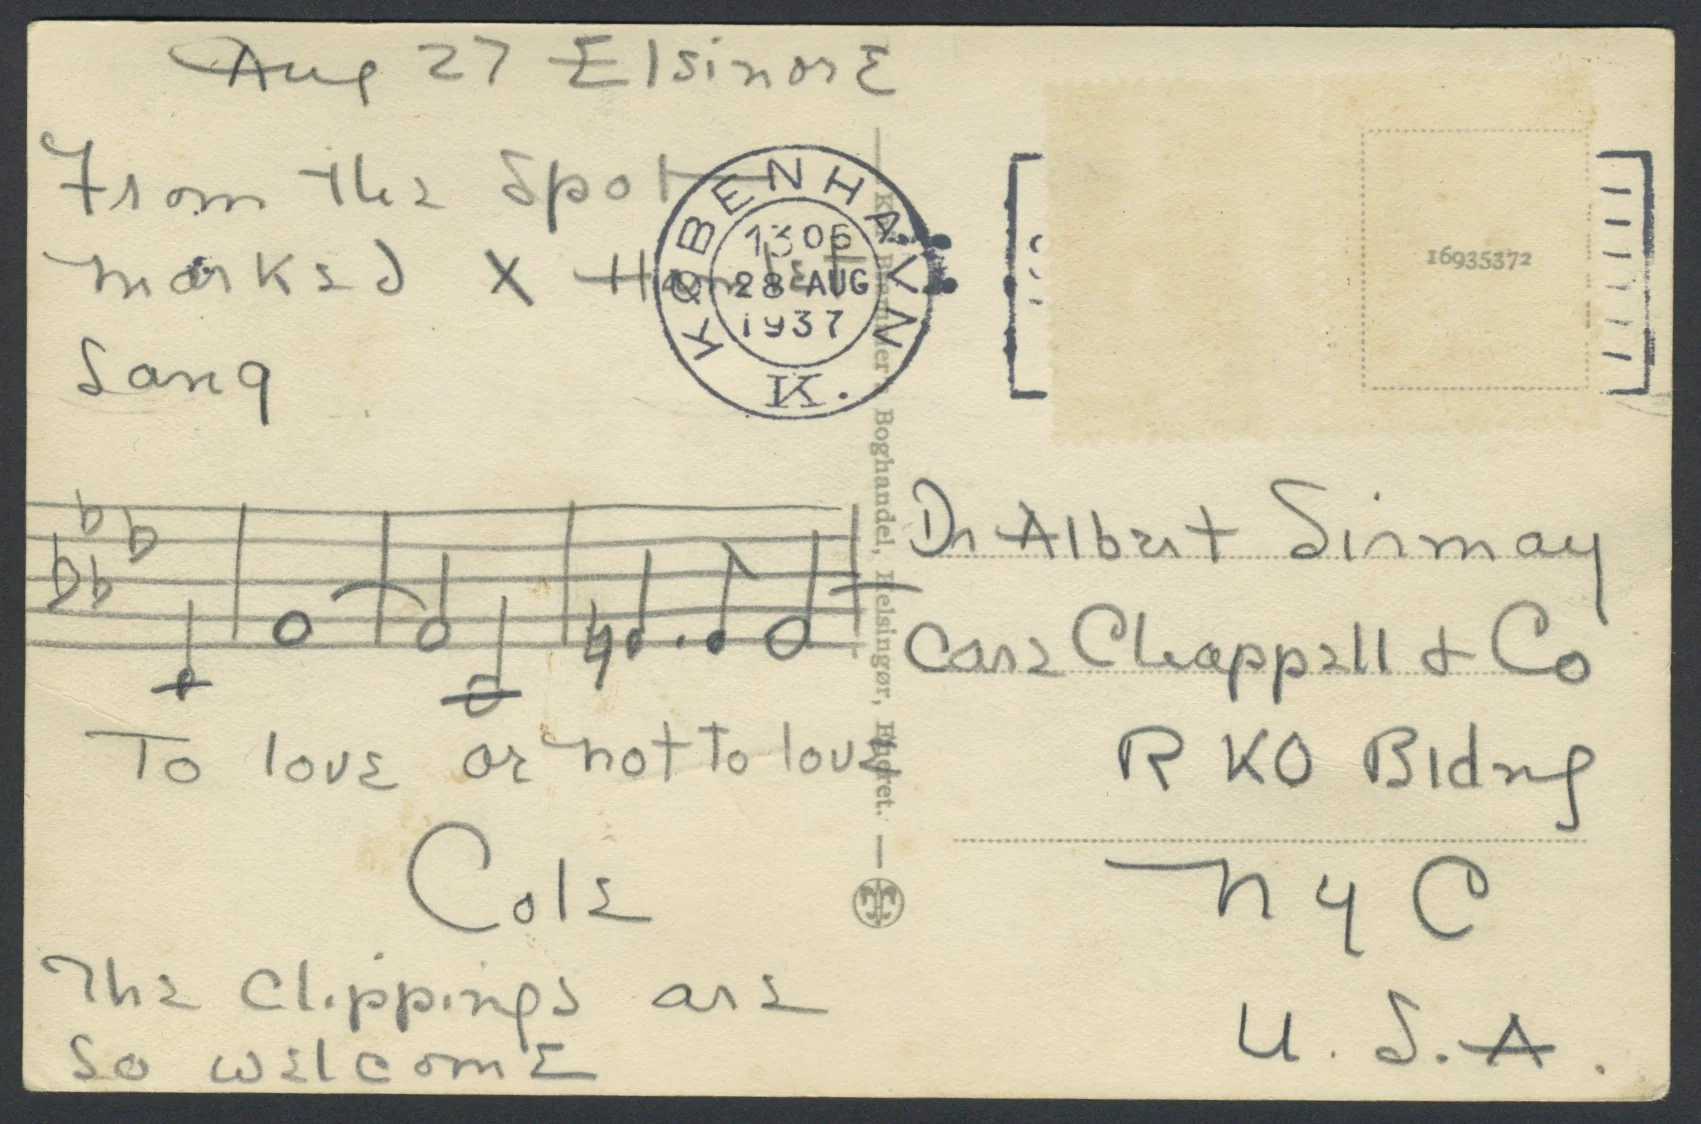 Aug 27 Elsinore
From the Spot
marked X Hamlet
Sang
To love or not to love
Cole
The clippings are
so welcome
KØBENHAVN
1306
28 AUG
1937
K.
Boghandel, Helsingør, Eneret.
16935372
Dr Albert Sirmay
Care Chappell & Co
RKO Bldng
N Y C
U. S. A.